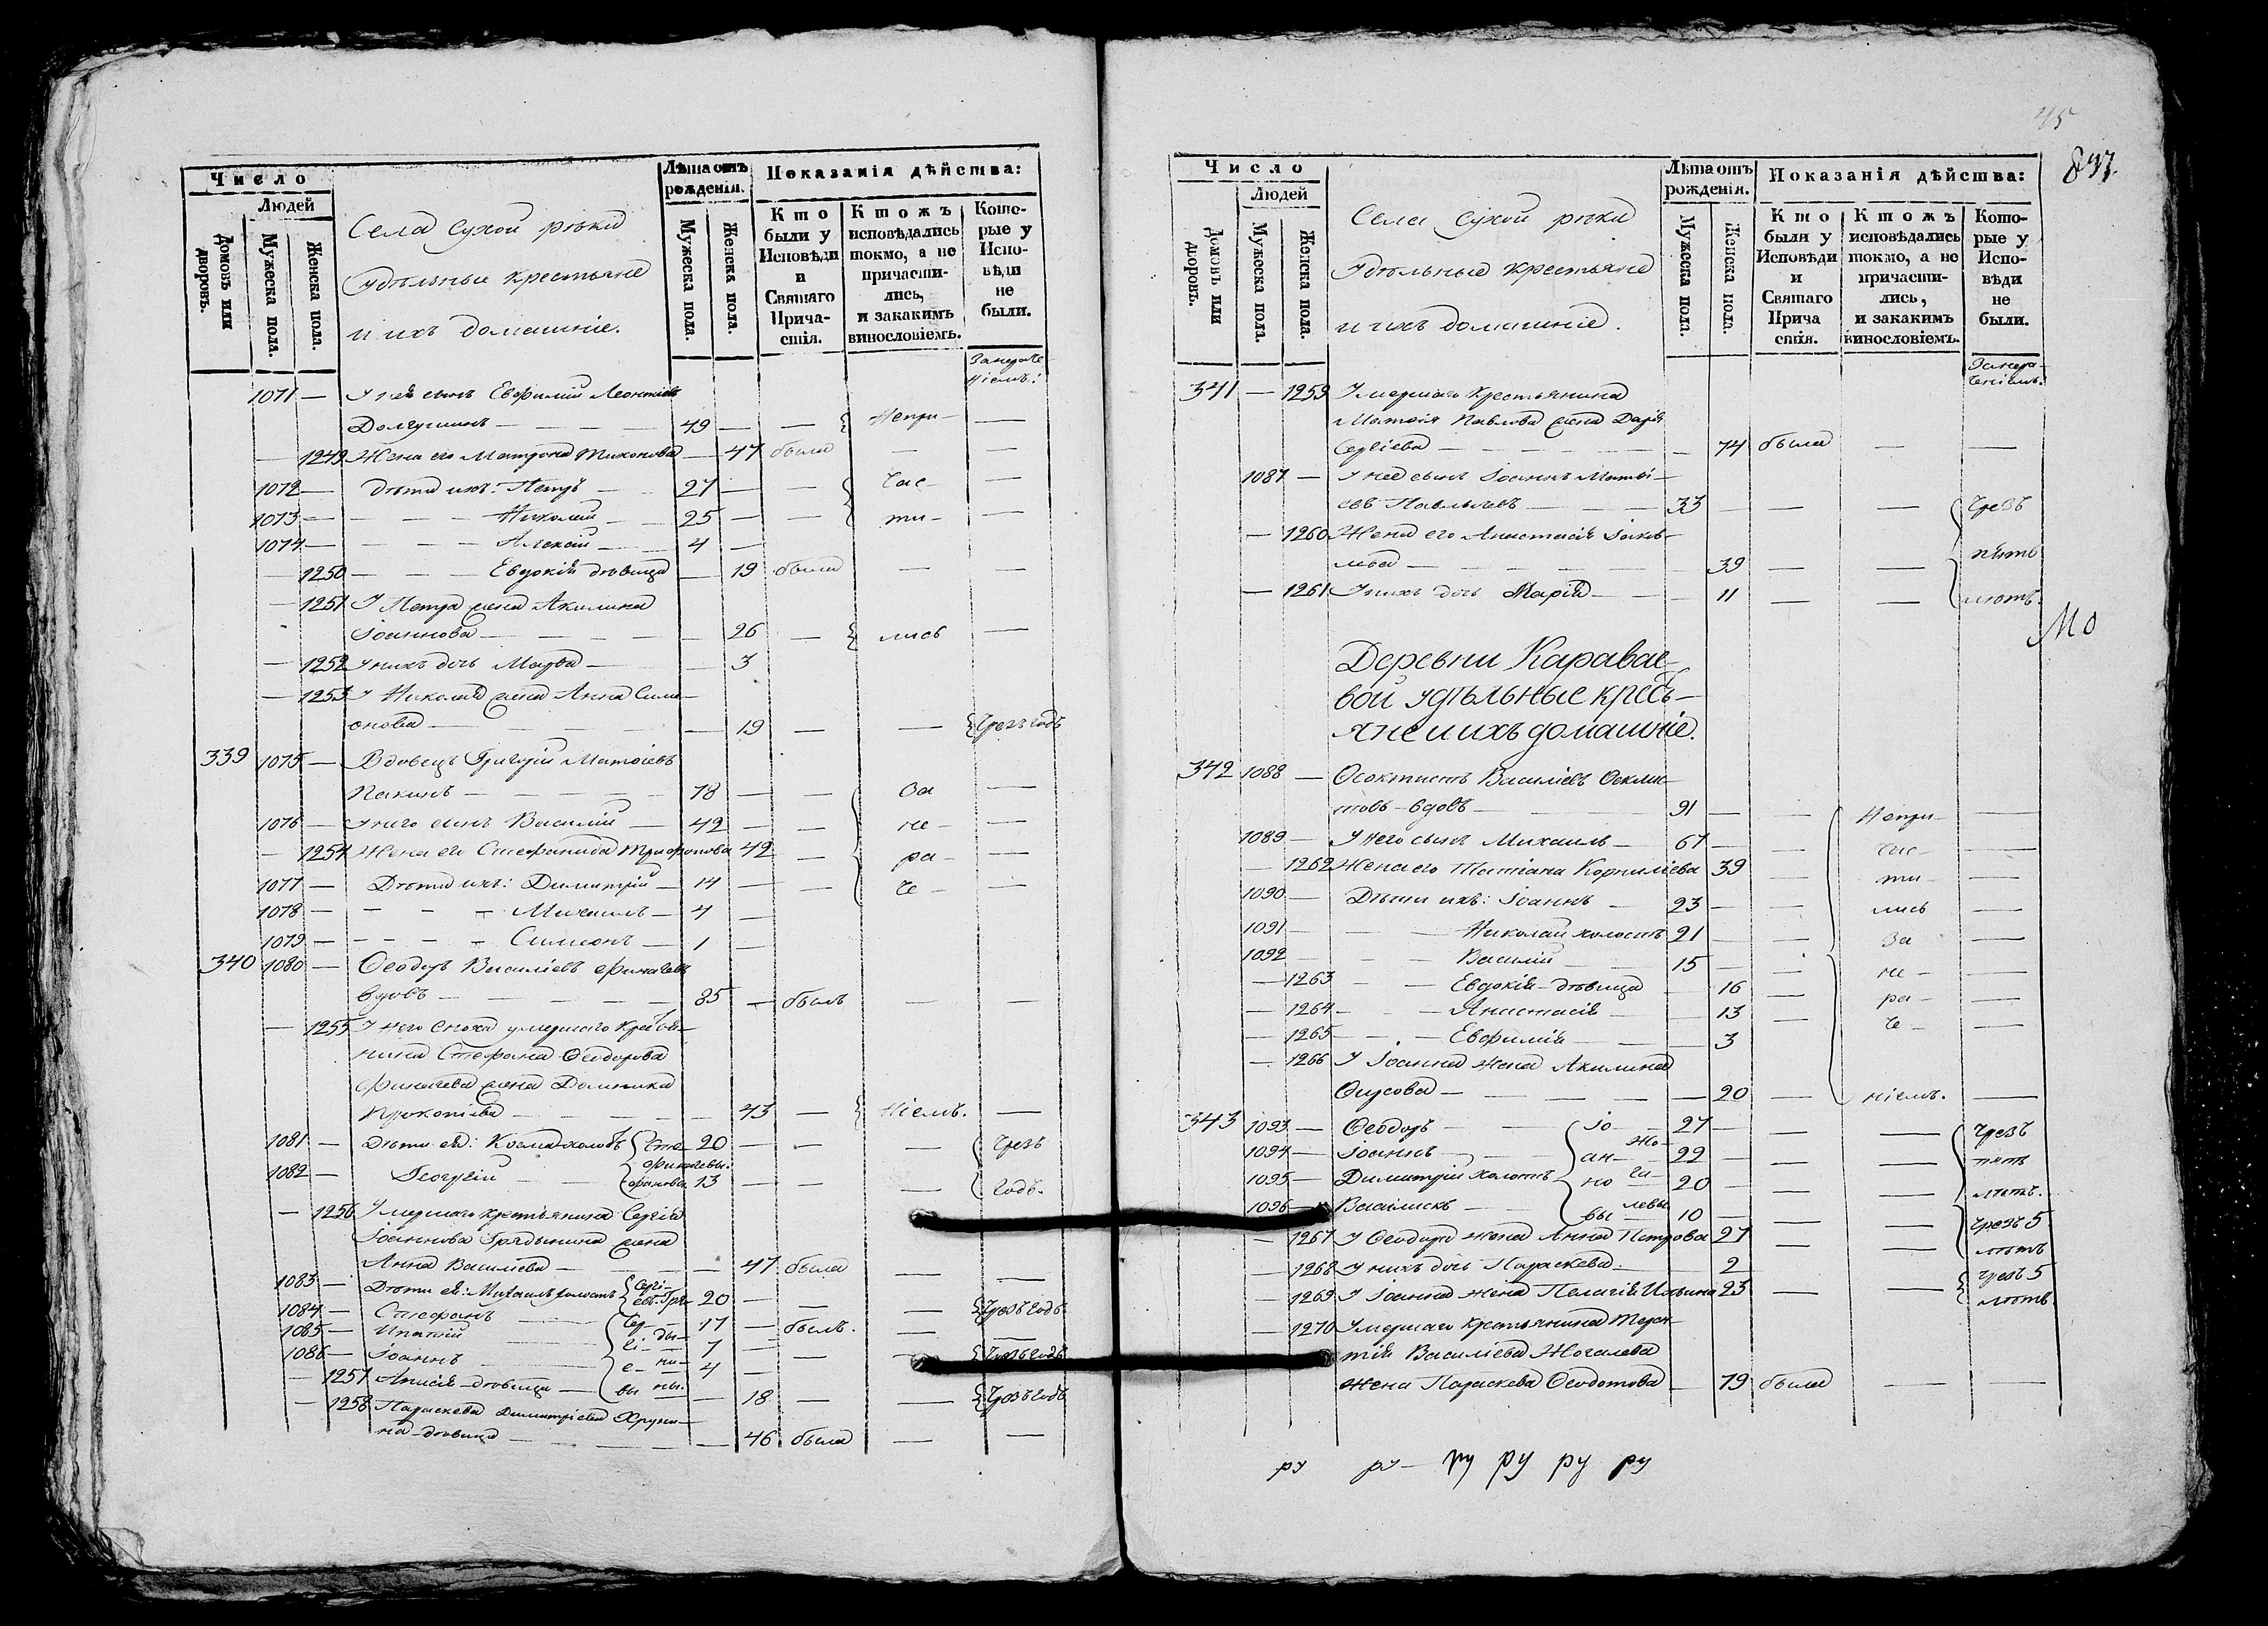 Число
Людей
Домовъ или дворовъ.
Мужеска пола.
Женска пола.
Села Сухой рѣки
удѣльные крестьяне
и ихъ домашніе.
Лѣта отъ рожденія.
Мужеска пола.
Женска пола.
Показанія дѣйства:
Кто были у Исповѣди и Святаго Прича- стія.
Ктожъ исповѣдались токмо, а не причасти- лись, и закакимъ винословіемъ.
Кото- рые у Испо- вѣди не были.
Занераче-
ніемъ:
1071 — У ней сынъ Евфимій Леонтіевъ
Долгушинъ — 49 — — Непри- —
— 1249 Жена его Матрона Тихонова — 47 была — —
1072 — Дѣти ихъ: Петръ — 27 — — час- —
1073 — Николай — 25 — — ти- —
1074 — Алексій — 4 —
1250 — Евдокія дѣвица — 19 была — —
— 1251 У Петра жена Акилина
Іоаннова — 26 — лись —
— 1252 у нихъ дочь Марѳа — 3
— 1253 У Николая жена Анна Симе-
онова — 19 — — Чрезъ годъ
339 1075 — Вдовецъ Григорій Матѳіевъ
78 — — За —
1076 — У него сынъ Василій — 42 — — не- —
— 1254 Жена его Стефанида Трифонова 42 — ра- —
1077 — Дѣти ихъ: Димитрій — 14 — — че- —
1078 — Михаилъ — 4 —
1079 — Симеонъ — 1 —
340 1080 — Ѳеодоръ Василіевъ
вдовъ — 85 — былъ — —
— 1255 У него сноха умершаго крестья-
нина Стефана Ѳеодорова
жена Домника
Прокопіева — 43 — ніемъ. —
1081 — Дѣти ея: Косма холостъ Сте- 20 — — Чрезъ
1082 — Георгій фановы 13 — — — годъ.
— 1256 Умершаго крестьянина Сергія
Іоаннова Грядынина жена
Анна Василіева — 47 была — —
1083 — Дѣти ея: Михаилъ холостъ Сергі- евъ Гря- 20 — — — Чрезъ годъ
1084 — Стефанъ Сер- 17 — былъ. — —
1085 — Ипатій гі- ды- 7 — — — Чрезъ годъ
1086 — Іоаннъ е- ни- 4 —
— 1257 Анисія дѣвица вы ны. — 18 — — Чрезъ годъ
— 1258 Параскева Димитріева Хруни-
на дѣвица — 46 была — —
45
837.
Число
Людей
Домовъ или дворовъ.
Мужеска пола.
Женска пола.
Села Сухой рѣки
Удѣльные крестьяне
и ихъ домашніе.
Лѣта отъ рожденія.
Мужеска пола.
Женска пола.
Показанія дѣйства:
Кто были у Исповѣди и Святаго Прича стія.
Ктожъ исповѣдались токмо, а не причасти- лись, и закакимъ винословіемъ.
Кото- рые у Испо- вѣди не были.
Занера-
ченіемъ:
341 — 1259 Умершаго крестьянина
Матѳія Павлова жена Дарія
Сергіева — 74 была — —
1087 — У нея сынъ Іоаннъ Матѳі-
евъ Павлычевъ — 33 — — — Чрезъ
— 1260 Жена его Анастасія Іаков-
лева — 39 — — пять
— 1261 У нихъ дочь Марія — 11 — — лѣтъ.
Мо
Деревни Каравае-
вой удѣльные кресь-
яне и ихъ домашніе.
342 1088 — Ѳеоктистъ Василіевъ Ѳекли-
стовъ вдовъ — 91 — — Непри- —
1089 — У него сынъ Михаилъ — 67 — — час- —
— 1262 Жена его Татіана Корниліева 39 — ти- —
1090 — Дѣти ихъ: Іоаннъ — 23 — — лись —
1091 — Николай холостъ 21 — — За —
1092 — Василій — 15 — — не- —
— 1263 — Евдокія дѣвица — 16 — ра- —
— 1264 — Анастасія — 13 — че- —
— 1265 — Евфимія — 3
— 1266 У Іоанна жена Акилина
— 20 — ніемъ. —
343 1093 — Ѳеодоръ — Іо- 27 — — — Чрезъ
1094 — Іоаннъ — ан- Жо- 22 — — — пять
1095 — Димитрій холостъ но га- 20 — — — лѣтъ.
1096 — Василискъ — вы левы 10 — — — Чрезъ 5
— 1267 У Ѳеодора жена Анна Петрова 27 — — лѣтъ
— 1268 У нихъ дочь Параскева — 2
— 1269 У Іоанна жена Пелагія Ильина 23 — — Чрезъ 5 лѣтъ
— 1270 Умершаго крестьянина Терен-
тія Василіева Жогалева
жена Параскева Ѳеодотова — 79 была — —
ру ру — ру ру ру ру